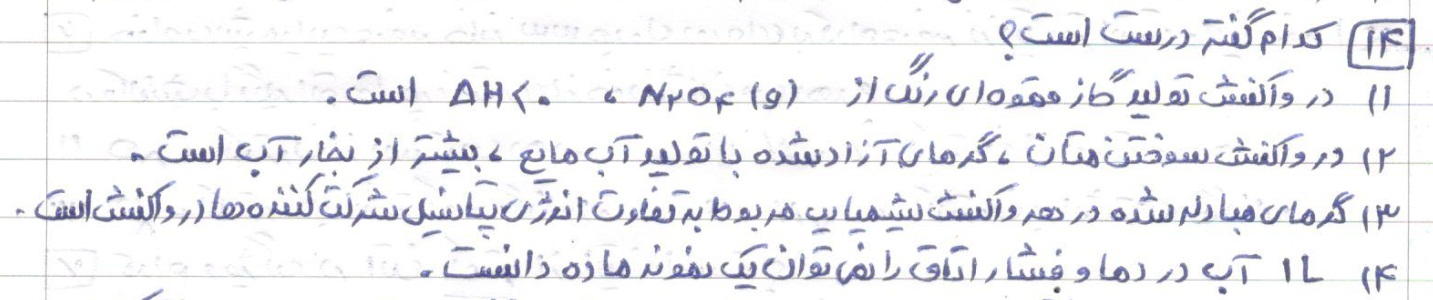 ۱۴) کدام گفته درست است؟
۱) در واکنش تولید گاز قهوه‌ای رنگ از N۲O۴ (g) ، ΔH<۰ است.
۲) در واکنش سوختن متان ، گرمای آزاد شده با تولید آب مایع ، بیشتر از بخار آب است.
۳) گرمای مبادله شده در هر واکنش شیمیایی مربوط به تفاوت انرژی پتانسیل شرکت کننده‌ها در واکنش است.
۴) ۱L آب در دما و فشار اتاق را نمی‌توان یک نمونه ماده دانست.